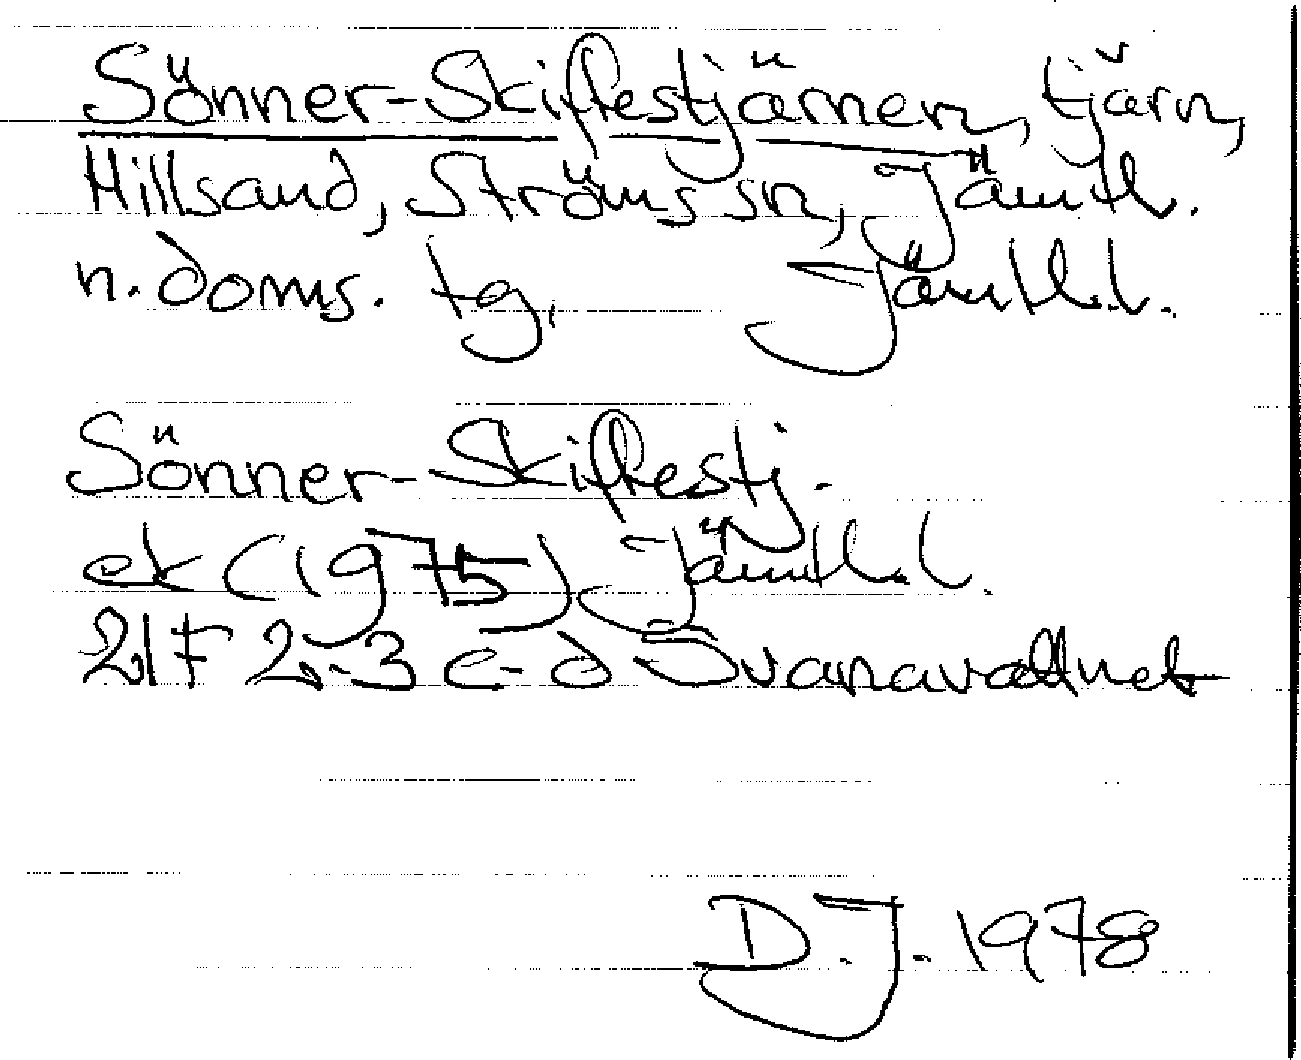 Sönner-Skiftestjärnen, tjärn,
Hillsand, Ströms sn, Jämtl.
n. doms. tg, Jämtl.l.
Sönner-Skiftestj.
ek (1975). Jämtl.l.
21F 2-3 c-d Svanavattnet
D.J. 1978